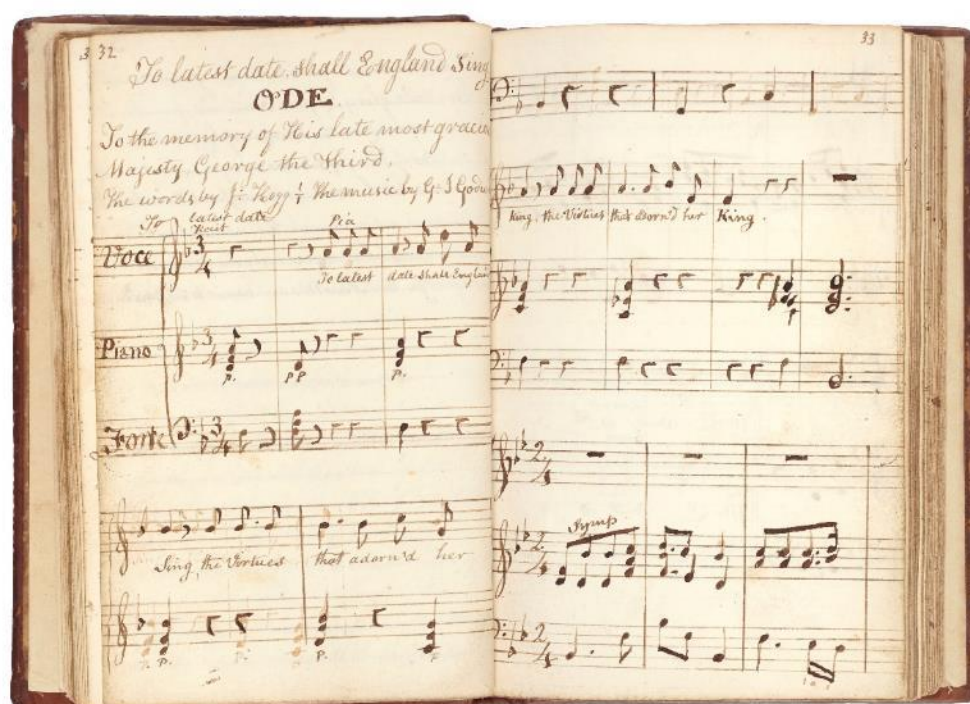 32
To latest date shall England Sing
ODE
To the memory of His late most gracio
Majesty George the Third.
The words by J. Hogg The music by G. J. God
To latest date
Pia
Voce 3 4
To latest date shall England
Piano 3 4
p. pp p.
Forte 3 4
Sing the Virtues that adorn'd her
p. p. p. p.
33
King, the Virtues that adorn'd her King.
p
2 4
Symp
2 4
2 4